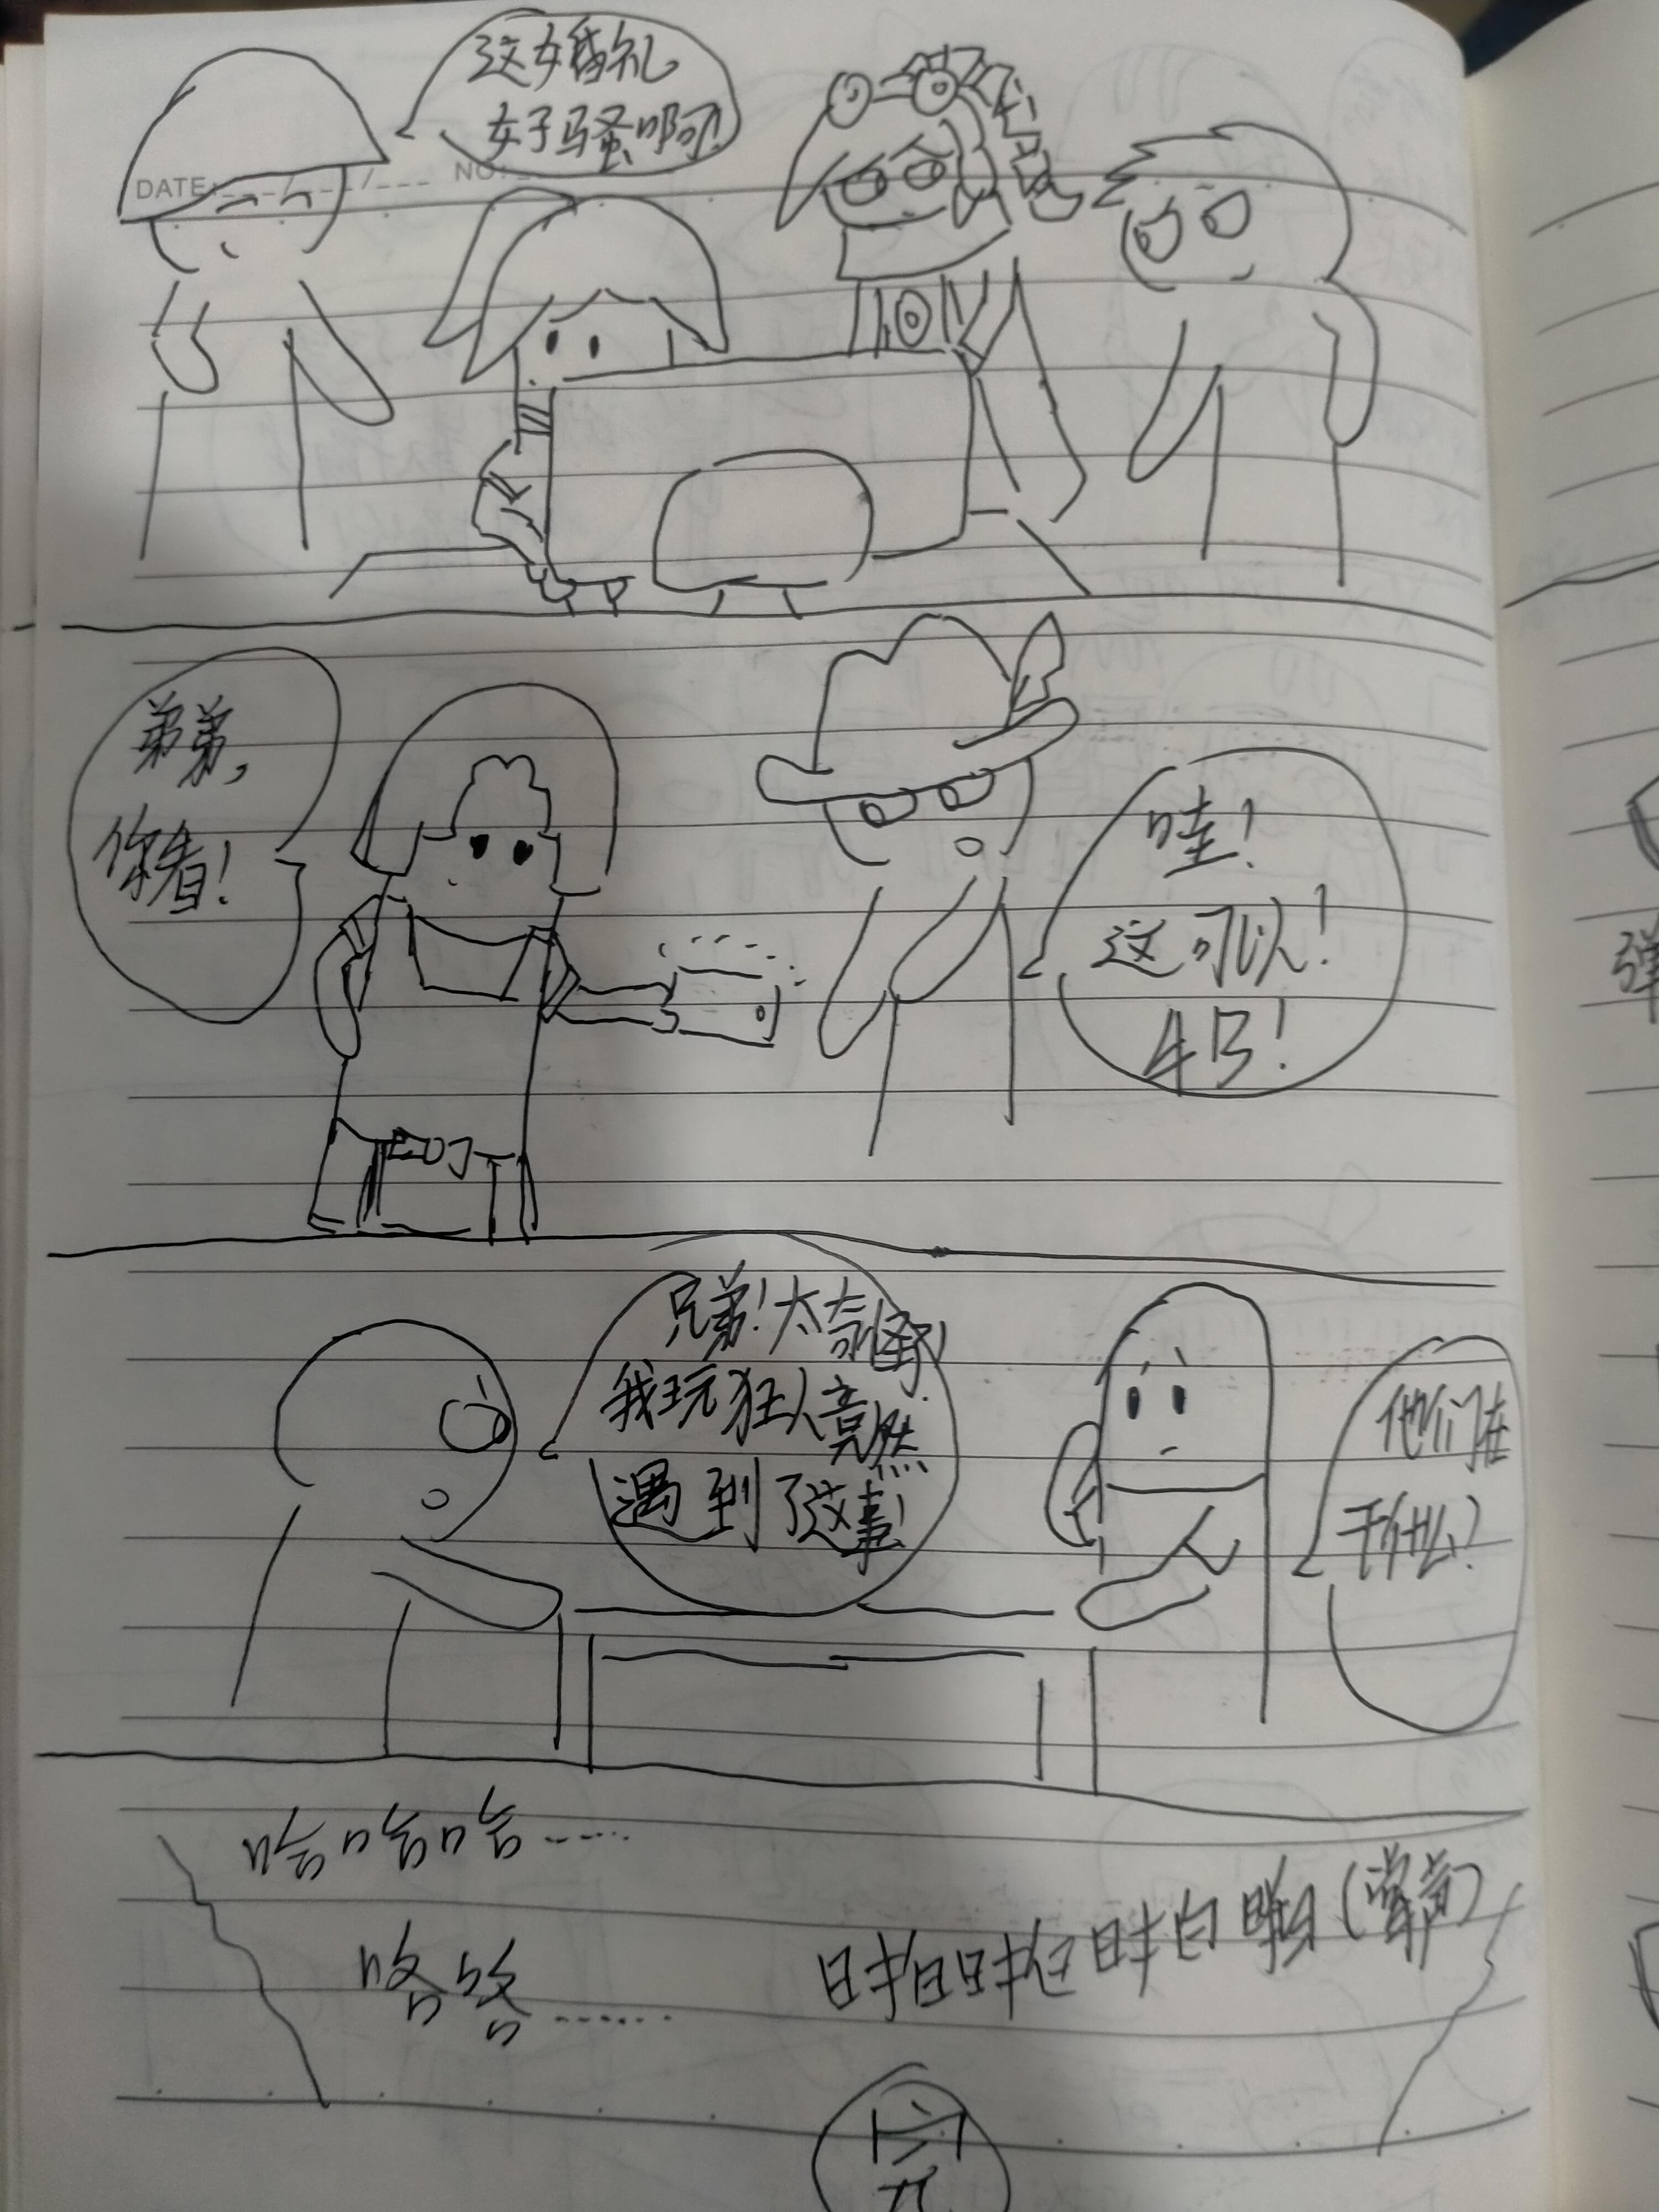 这婚礼
好骚啊!
DATE:___/___/___ NO:
弟弟,
你看!
哇!
这可以!
牛B!
兄弟!太奇怪了!
我玩狂人竟然
遇到了这事!
他们在
干什么?
哈哈哈……
咯咯……
(掌声)
完